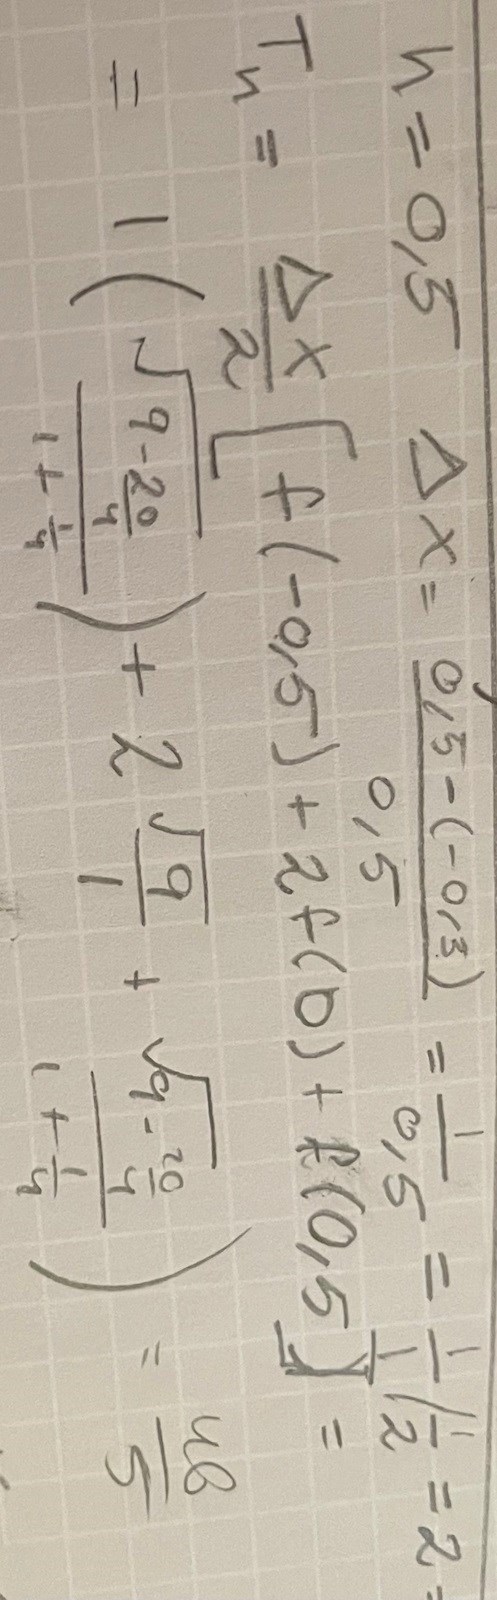 h = 0,5 Δx = (0,5 - (-0,3)) / 0,5 = 1 / 0,5 = 1/1 / 1/2 = 2 =
Tn = Δx/2 [f(-0,5) + 2f(0) + f(0,5)] =
= 1 (√(9 - 20/4) / (1 + 1/4)) + 2 √9 / 1 + √(9 - 20/4) / (1 + 1/4)) = 46/5